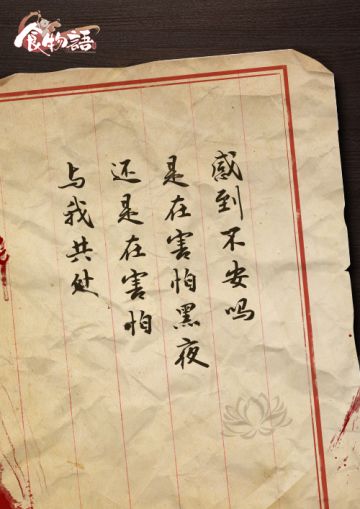 食物語
感到不安吗
是在害怕黑夜
还是在害怕
与我共处